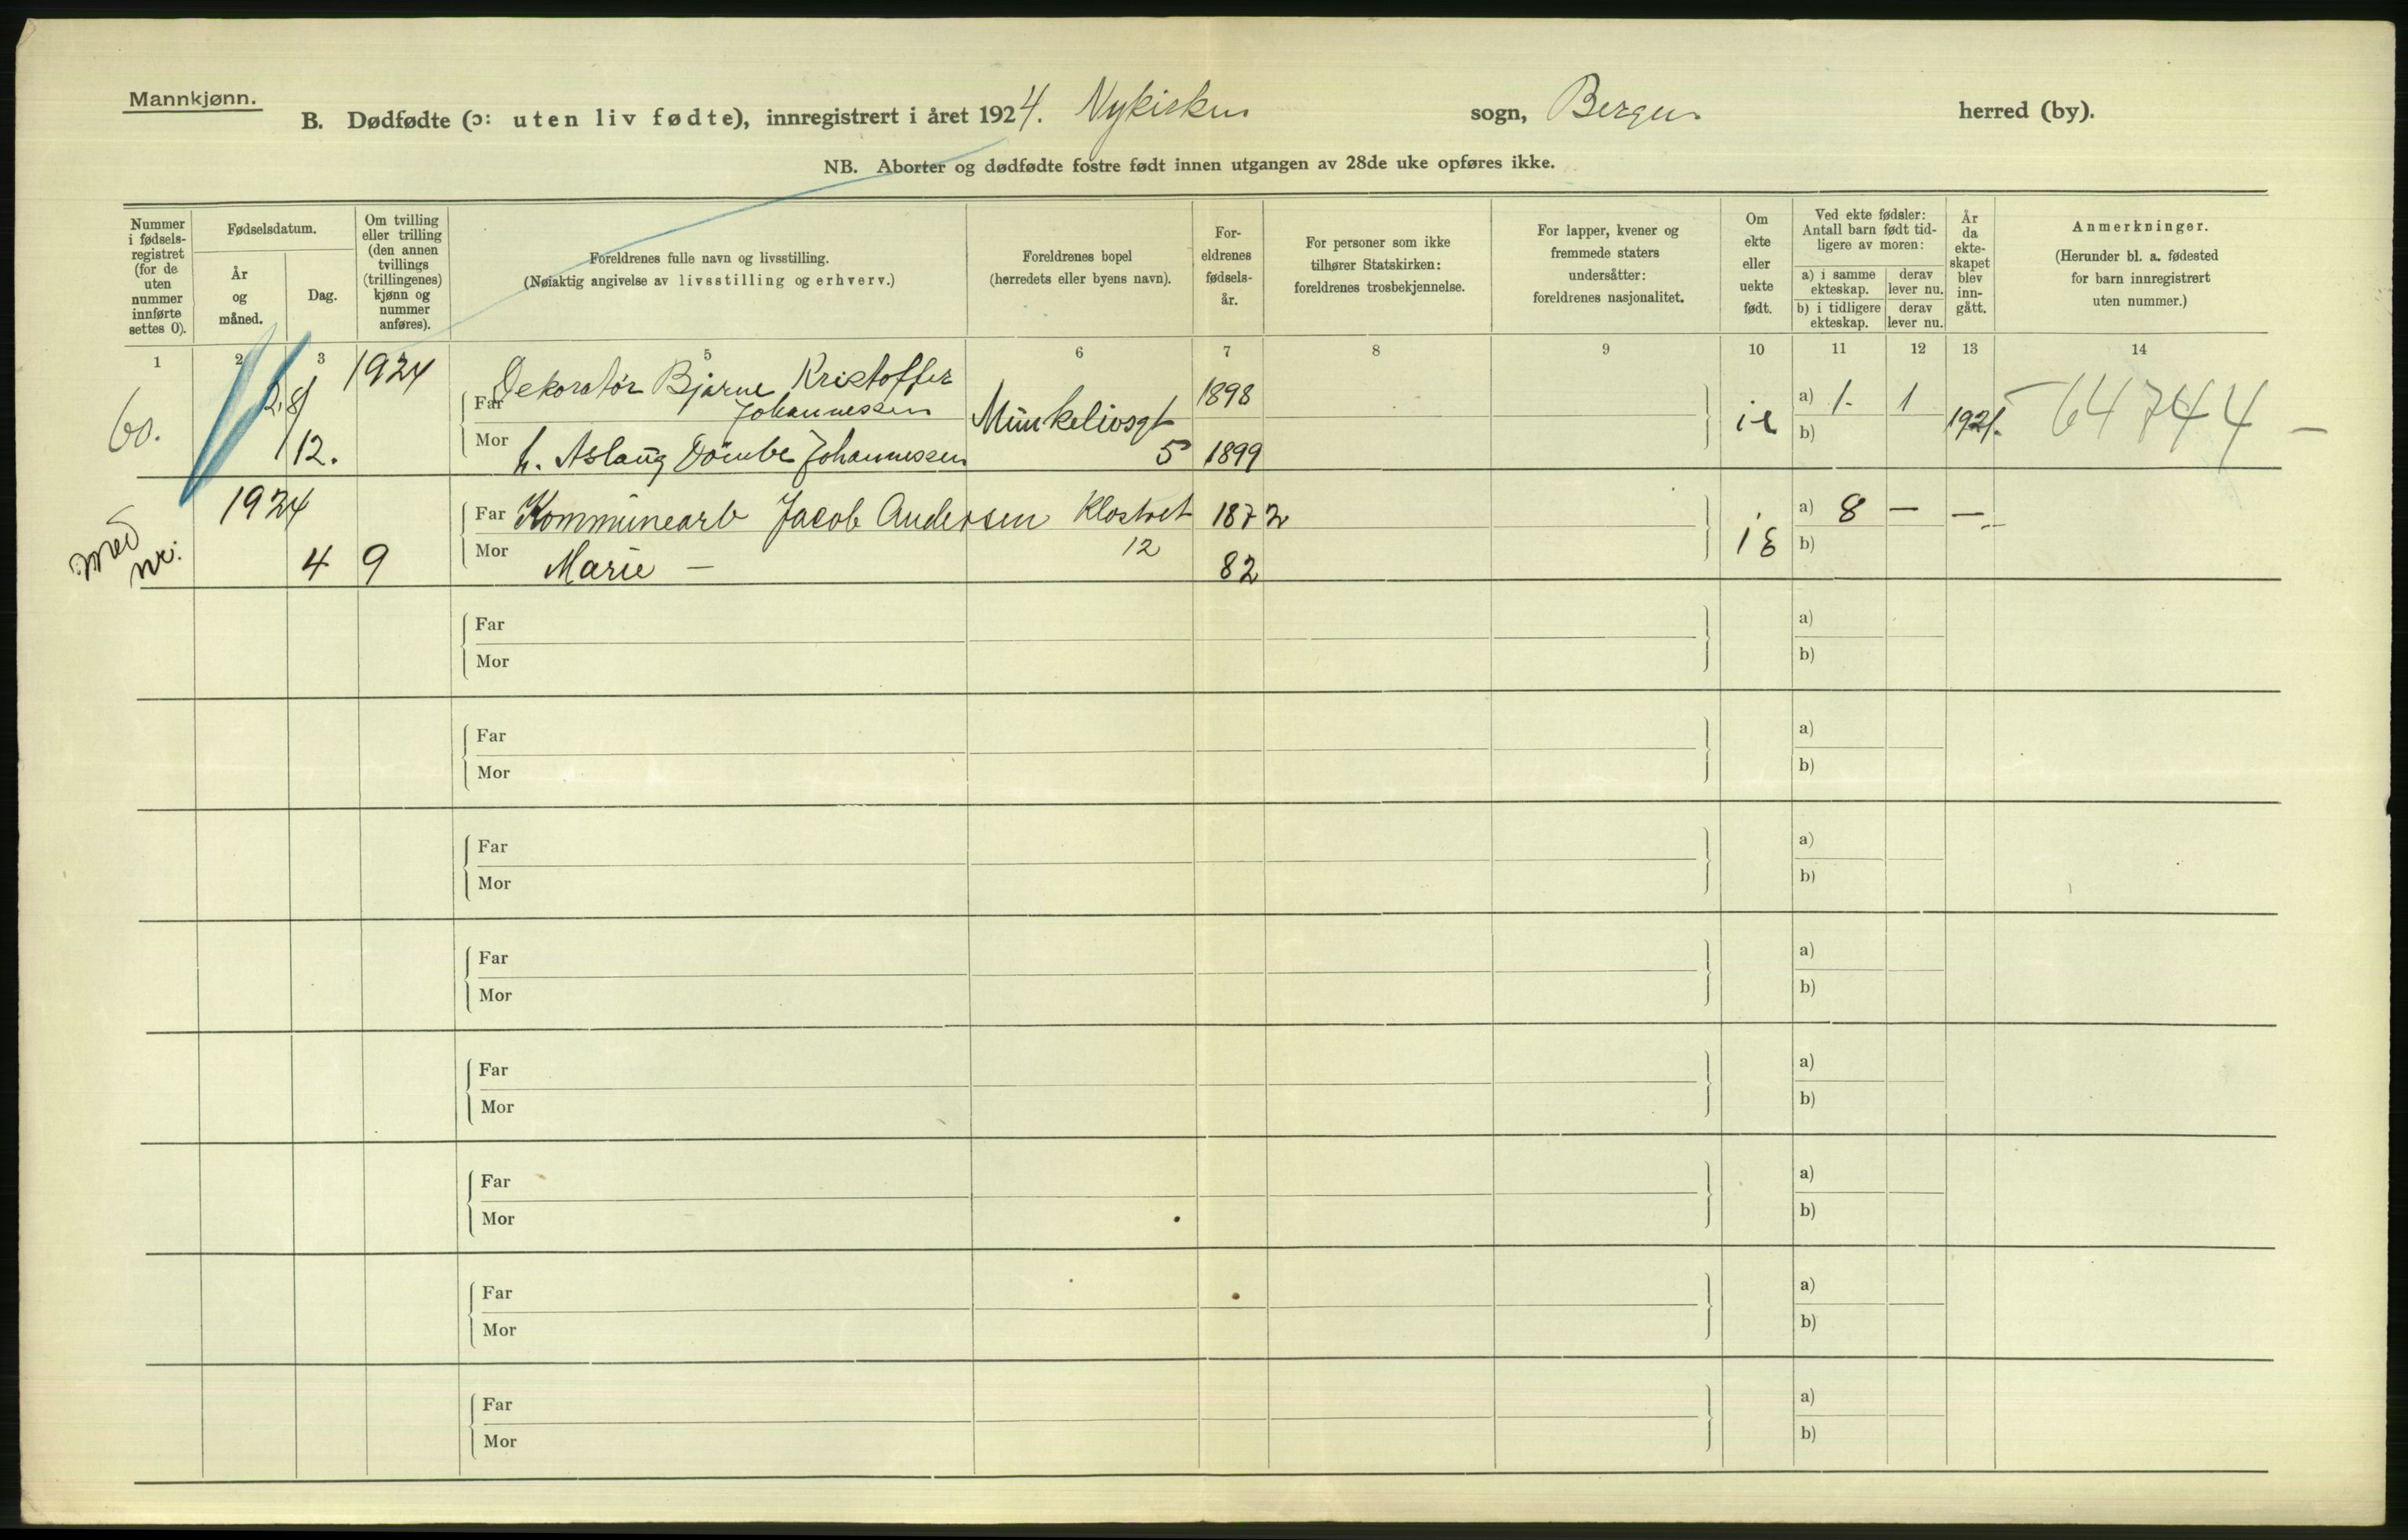 Mannkjønn.
B. Dødfødte (ɔ: uten liv fødte), innregistrert i året 1924. Nykirken sogn, Bergen herred (by).
NB. Aborter og dødfødte fostre født innen utgangen av 28de uke opføres ikke.
Nummer
i fødsels-
registret
(for de
uten
nummer
innførte
settes 0).
Fødselsdatum.
År
og
måned.
Dag.
Om tvilling
eller trilling
(den annen
tvillings
(trillingenes)
kjønn og
nummer
anføres).
Foreldrenes fulle navn og livsstilling.
(Nøiaktig angivelse av livsstilling og erhverv.)
Foreldrenes bopel
(herredets eller byens navn).
For-
eldrenes
fødsels-
år.
For personer som ikke
tilhører Statskirken:
foreldrenes trosbekjennelse.
For lapper, kvener og
fremmede staters
undersåtter:
foreldrenes nasjonalitet.
Om
ekte
eller
uekte
født.
Ved ekte fødsler:
Antall barn født tid-
ligere av moren:
a) i samme
ekteskap.
derav
lever nu.
b) i tidligere
ekteskap.
derav
lever nu.
År
da
ekte-
skapet
blev
inn-
gått.
Anmerkninger.
(Herunder bl. a. fødested
for barn innregistrert
uten nummer.)
1 2 3 5 6 7 8 9 10 11 12 13 14
60. 28/12. 1924
Far Dekoratør Bjarne Kristoffer
Johannessen
Munkelivsgt 5
1898
Mor h. Aslaug Johannessen
1899
ie
a) 1. 1
b)
1921.
64744 —
1924
4 9
Far Kommunearb Jacob Andersen
Klostret 12
1872
Mor Marie —
82
a) 8 — —
b)
Far
Mor
a)
b)
Far
Mor
a)
b)
Far
Mor
a)
b)
Far
Mor
a)
b)
Far
Mor
a)
b)
Far
Mor
a)
b)
Far
Mor
a)
b)
Far
Mor
a)
b)